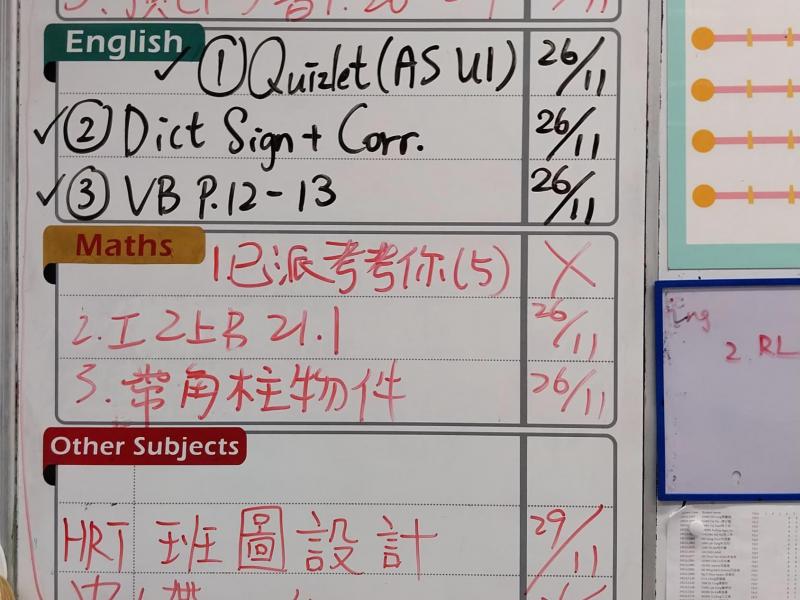 English
✓ ① Quizlet (AS U1) 26/11
✓ ② Dict Sign + Corr. 26/11
✓ ③ VB P.12-13 26/11
Maths
1 已派考考你(5) X
2. 工2上B 21.1 26/11
3. 帶角柱物件 26/11
Other Subjects
HRT 班圖設計 29/11
2. RL